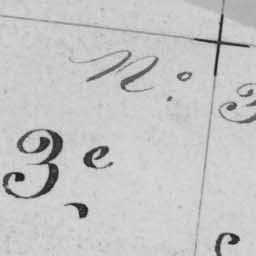 N.º 3
3.e